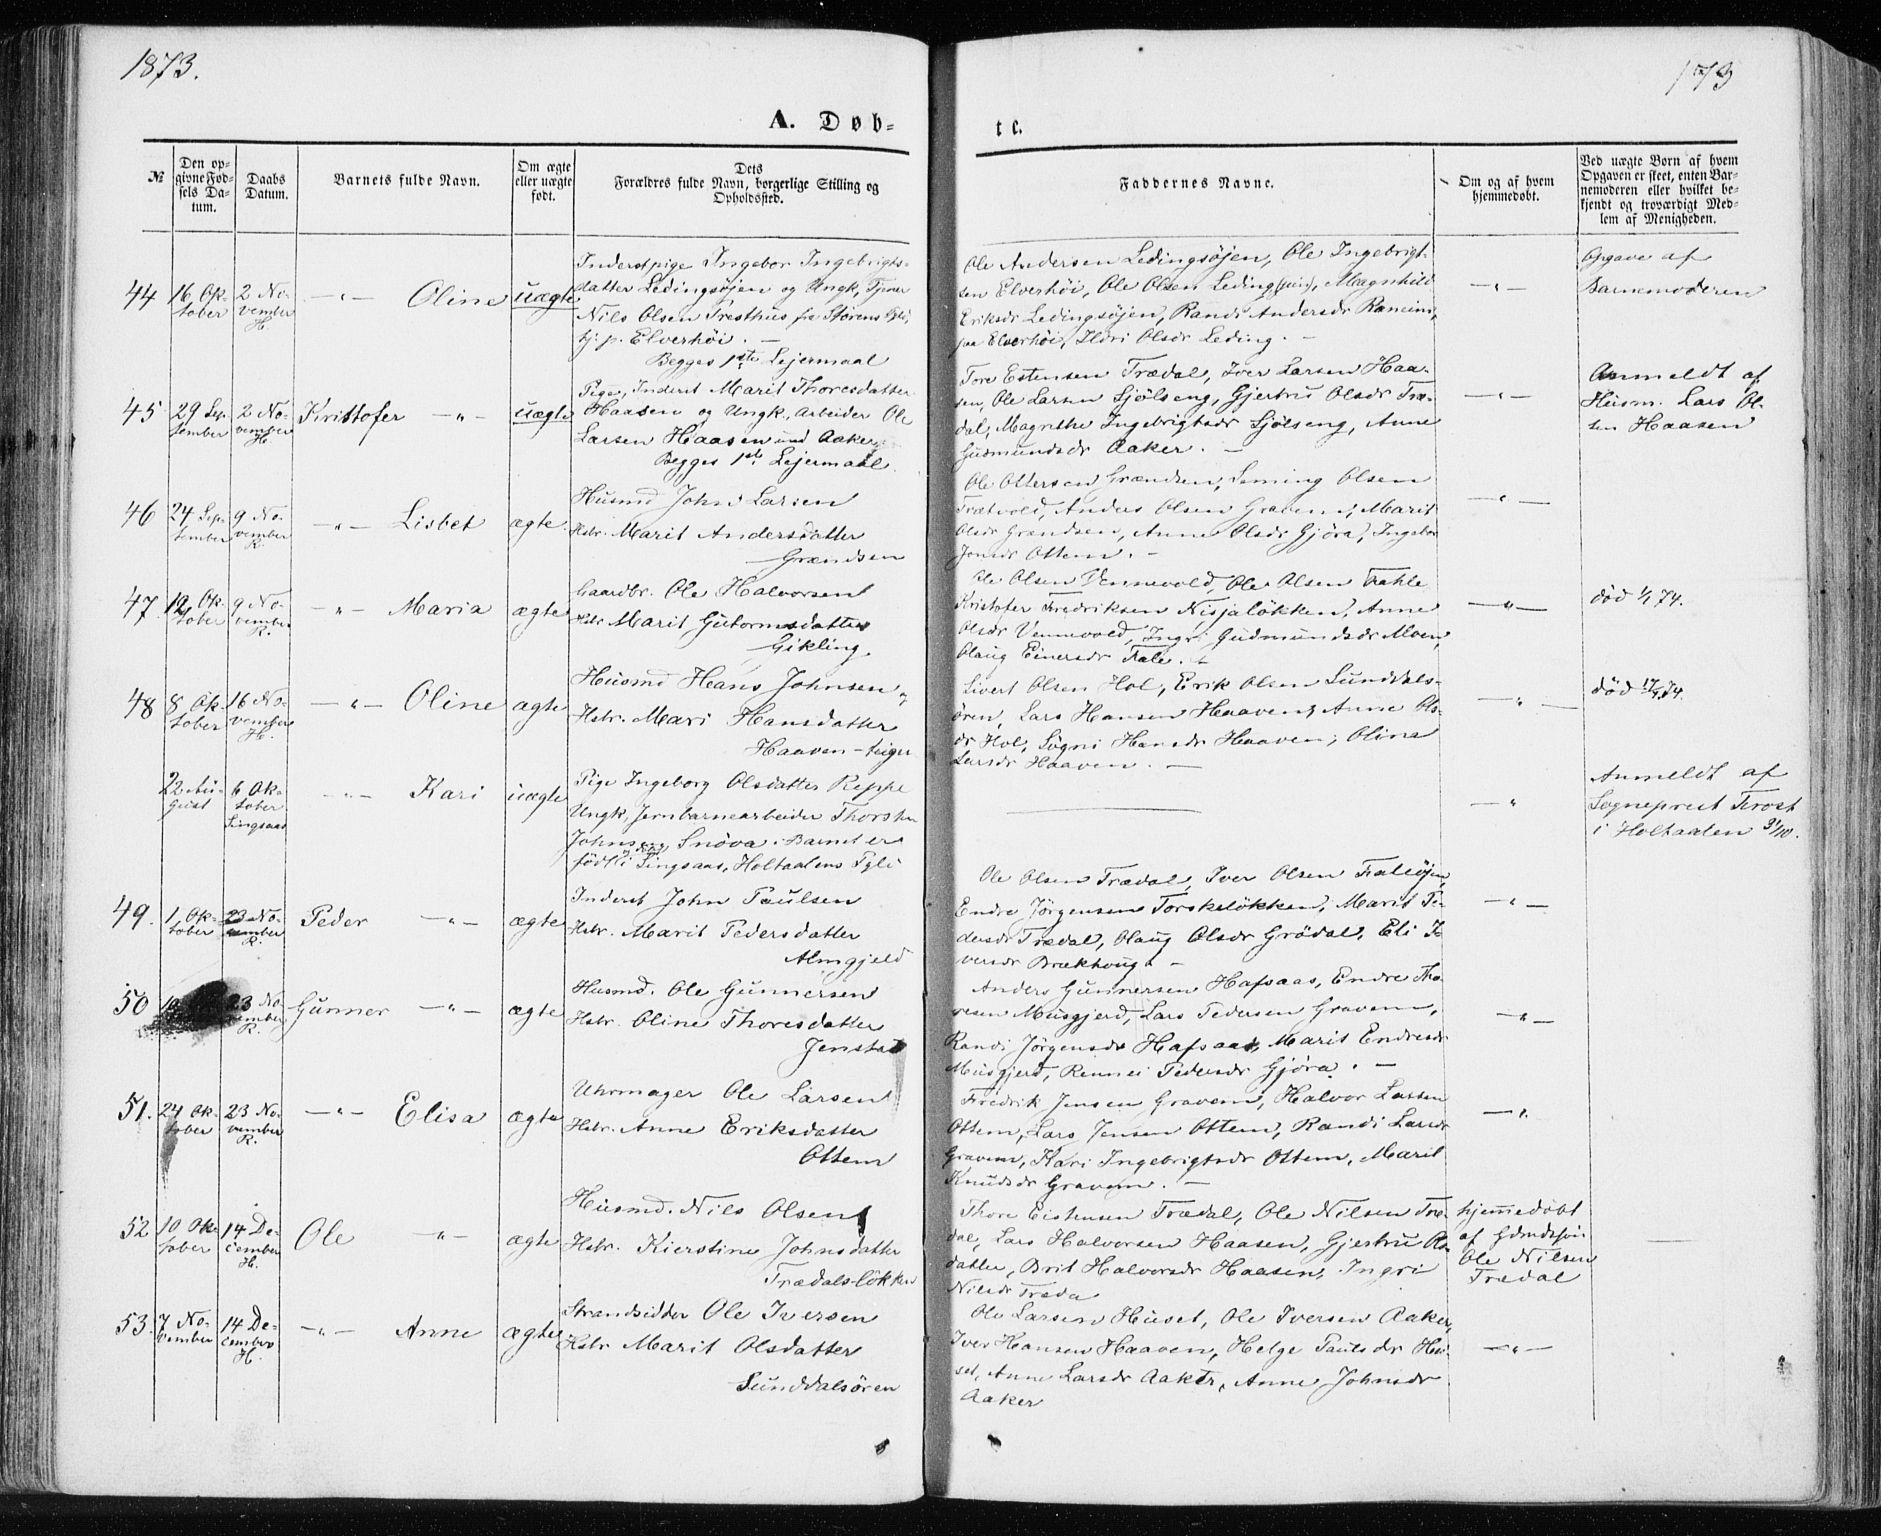 1873.
173
A. Døb-
te.
№
Den op-
givne Fød-
sels Da-
tum.
Daabs
Datum.
Barnets fulde Navn.
Om ægte
eller uægte
født.
Dets
Forældres fulde Navn, borgerlige Stilling og
Opholdssted.
Faddernes Navne.
Om og af hvem
hjemmedøbt.
Ved uægte Børn af hvem
Opgaven er skeet, enten Bar-
nemoderen eller hvilket be-
kjendt og troværdigt Med-
lem af Menigheden.
44
16 Ok-
tober
2 No-
vember
H.
—"—
Oline
uægte
Inderstpige Ingebor Ingebrigts-
datter Ledingsøjen og Ungk, Tjener
Nils Olsen Presthus fra Størens Pgld,
tj. p. Elverhöi. —
Begges 1ste Lejermaal
Ole Andersen Ledingsøjen, Ole Ingebrigt-
sen Elverhöi, Ole Olsen Leding, Magnhild
Eriksdr Ledingsøjen, Randi Andersdr
paa Elverhöi, Ildri Olsdr Leding. —
—"—
Opgave af
Barnemoderen
45
29 Sep-
tember
2 No-
vember
H.
Kristtofer —"—
uægte
Pige, Inderst Marit Thoresdatter
Haasen og Ungk, Arbeider Ole
Larsen Haasen und Aaker,
Begges 1ste Lejermaal.
Tore Estensen Trædal, Iver Larsen Haa-
sen, Ole Larsen Sjölseng, Gjertru Olsdr Træ-
dal, Magrethe Ingebrigtsdr Sjölseng, Anne
Gudmundsdr Aaker. —
—"—
Anmeldt af
Husm. Lars Ol-
sen Haasen
46
24 Sep-
tember
9 No-
vember
R.
—"—
Lisbet
ægte.
Husmd John Larsen
Hstr. Marit Andersdatter
Grændsen
Ole Ottersen Grændsen, Leming Olsen
Trætvold, Anders Olsen Gravem, Marit
Olsdr Grændsen, Anne Olsdr Gjöra, Ingebor
Jonsdr Ottem. —
—"—
47.
12 Ok-
tober
9 No-
vember
R.
—"—
Maria
ægte
Gaardbr. Ole Halvorsen
Hstr Marit Gutormsdatter
Gikling.
Ole Olsen Vennevold, Ole Olsen Fahle
Kristofer Fredriksen Nisjalökken, Anne
Olsdr Vennevold, Ingri Gudmundsdr Moen,
Olaug Einersdr Fale. —
—"—
død 1/1 74.
48
8 Ok-
tober
16 No-
vember
H.
—"—
Oline
ægte
Husmd Hans Johnsen
Hstr. Mari Hansdatter
Haaven-teigen
Sivert Olsen Hol, Erik Olsen Sunddals-
ören, Lars Hansen Haaven, Anne Ols-
dr Hol, Sögni Hansdr Haaven; Olina
Larsdr Haaven. —
—"—
død
22 Au-
gust
6 Ok-
tober
Singsaas
—"—
Kari
uægte
Pige Ingeborg Olsdatter Reppe
Ungk, Jernbanearbeider Thorsten
Johnsen Snöva. Barnet er
født i Singsaas, Holtaalens Pgld
—"
Anmeldt af
Sogneprest Trost
i Holtaalen 31/10.
49.
1 Ok-
tober
23 No-
vember
R.
Peder —"—
ægte
Inderst John Paulsen
Hstr. Marit Pedersdatter
Almgjeld
Ole Olsen Trædal, Iver Olsen Faleöjen,
Endre Jörgensen Torskelökken, Marit Pe-
dersdr Trædal, Olaug Olsdr Grödal, Eli I-
versdr Brækhoug. —
—"—
50
23 No-
vember
R.
Gunner —"—
ægte
Husmd. Ole Gunnersen
Hstr. Oline Thoresdatter
Jenstad
Anders Gunnersen Hafsaas, Endre Tho-
resen Musgjerd, Lars Pedersen Gravem,
Randi Jörgensdr Hafsaas, Marit Endresdr
Musgjerd, Rennei Pedersdr Gjöra. —
—"—
51.
24 Ok-
tober
23 No-
vember
R.
—"—
Elisa
ægte
Uhrmager Ole Larsen
Hstr. Anne Eriksdatter
Ottem
Fredrik Jensen Gravem, Halvor Larsen
Ottem, Lars Jensen Ottem, Randi Larsdr
Gravem, Kari Ingebrigtsdr Ottem, Marit
Knudsdr Gravem. —
—"
52
10 Ok-
tober
14 De-
cember
H.
Ole —"—
ægte
Husmd. Nils Olsen
Hstr. Kierstine Johnsdatter
Trædalslökken
Thore Eistensen Trædal, Ole Nilsen Træ-
dal, Lars Halvorsen Haasen, Gjertru Ols-
datter, Brit Halvorsdr Haasen, Ingri
Nilsdr Træda
hjemmedøbt
af
Ole Nilsen
Trædal
53.
7 No-
vember
14 De-
cember
H.
—"—
Anne
ægte
Strandsidder Ole Iversen
Hstr Marit Olsdatter
Sunddalsören
Ole Larsen Huset, Ole Iversen Aaker,
Iver Hansen Haaven, Helge Paulsdr Hu-
set, Anne Larsdr Aaker, Anne Johnsdr
Aaker
—"—